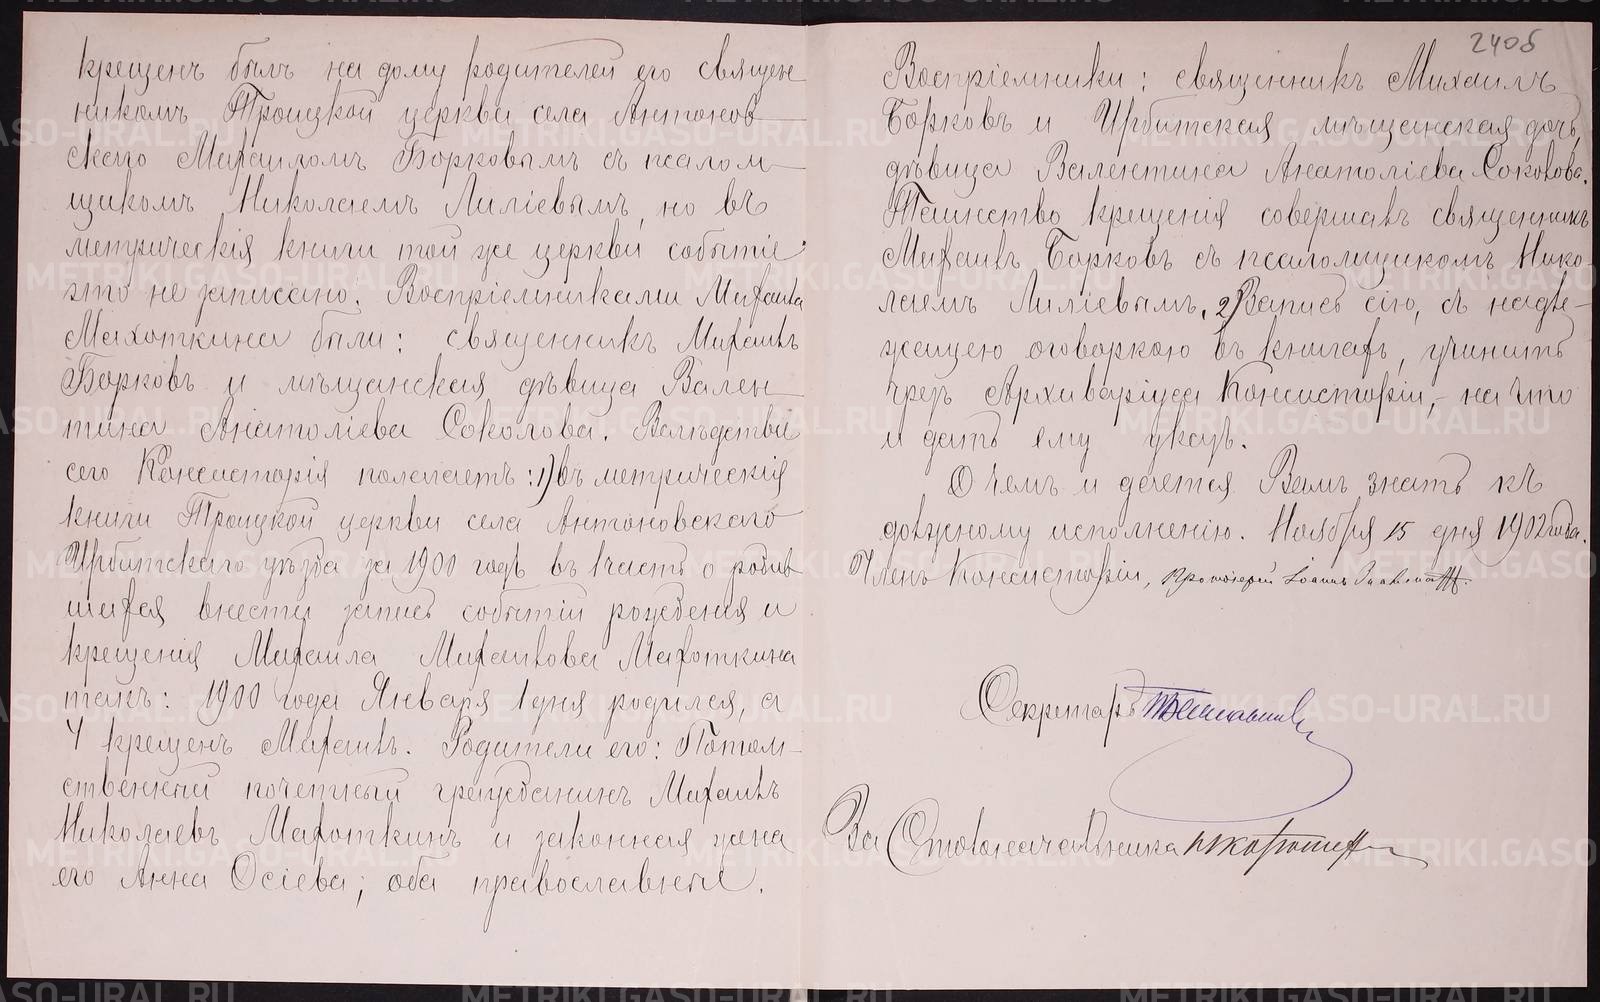 крещенъ былъ на дому родителей его священ
никомъ Троицкой церкви села Антонов
скаго Михаиломъ Борковымъ съ псалом
щикомъ Николаемъ Лиліевымъ, но въ
метрическія книги той же церкви событіе
это не записано. Воспріемниками Михаила
Махоткина были: священникъ Михаилъ
Борковъ и мѣщанская дѣвица Вален
тина Анатоліева Соколова. Вслѣдствіе
сего Консисторія полагаетъ: 1) въ метрическія
книги Троицкой церкви села Антоновскаго
Ирбитскаго уѣзда за 1900 годъ въ I часть о родив
шихся внести запись событій рожденія и
крещенія Михаила Михаилова Махоткина
такъ: 1900 года Января 1 дня родился, а
4 крещенъ Михаилъ. Родители его: Потом
ственный почетный гражданинъ Михаилъ
Николаевъ Махоткинъ и законная жена
его Анна Осіева; оба православные.
240б
Воспріемники: священникъ Михаилъ
Борковъ и Ирбитская мѣщанская дочь,
дѣвица Валентина Анатоліева Соколова.
Таинство крещенія совершалъ священникъ
Михаилъ Борковъ съ псаломщикомъ Нико-
лаемъ Лиліевымъ. 2) Запись сію, съ надле-
жащею оговоркою въ книгахъ, учинить
чрезъ Архиваріуса Консисторіи, - на что
и дать ему указъ.
О чемъ и дается Вамъ знать къ
должному исполненію. Ноября 15 дня 1902 года.
Членъ Консисторіи, Протоіерей Іоаннъ
Секретарь
За Столоначальника
METRIKI.GASO-URAL.RU